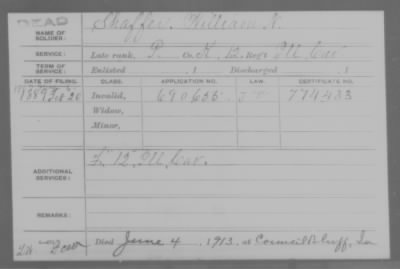 DEAD
NAME OF SOLDIER: Shaffer, William N.
SERVICE: Late rank, P. Co. K, 12 Reg't Ill Cav
TERM OF SERVICE: Enlisted , 1 Discharged , 1
DATE OF FILING. CLASS. APPLICATION NO. LAW. CERTIFICATE NO.
1889 Feb 20 Invalid, 690635 774433
Widow,
Minor,
ADDITIONAL SERVICES: K 12 Ill Cav.
REMARKS:
Died June 4, 1913, at Council Bluff, Ia